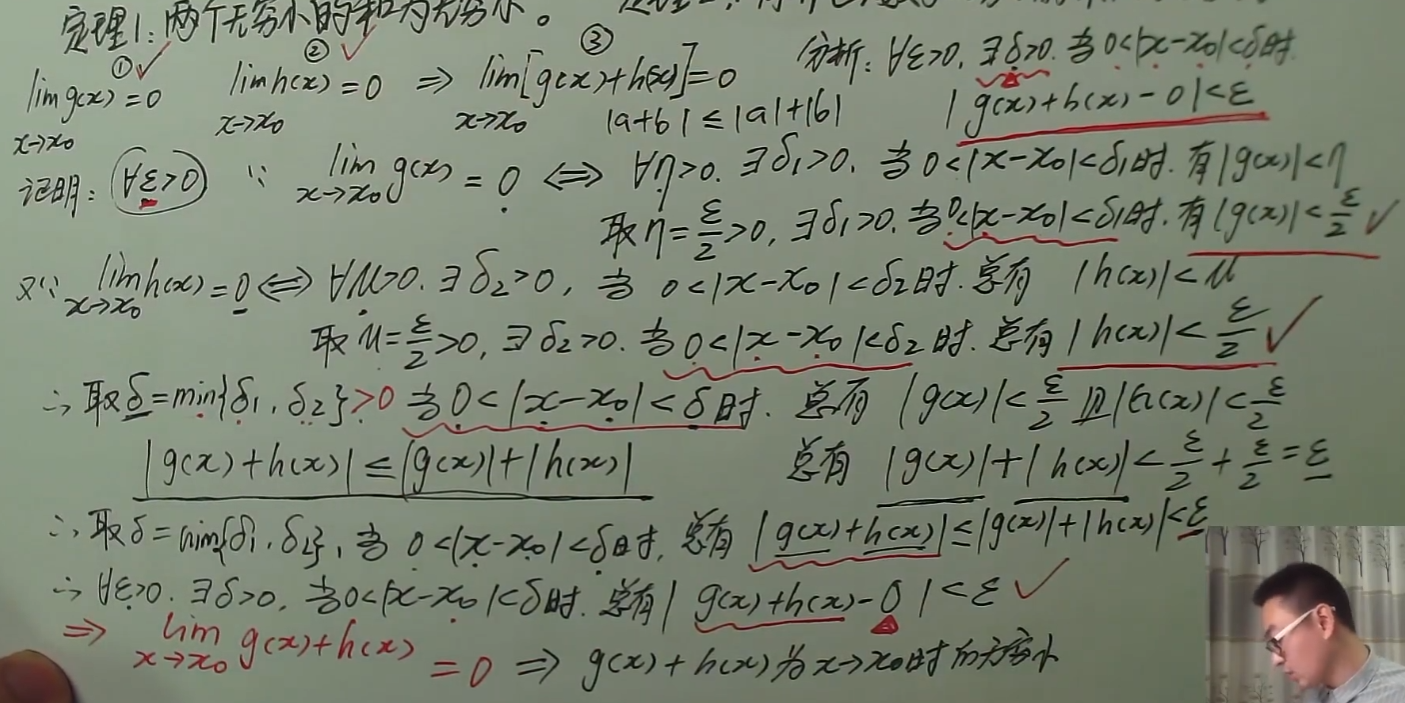 定理1:两个无穷小的和为无穷小。
① ✓ ② ✓ ③
lim g(x)=0 lim h(x)=0 ⇒ lim[g(x)+h(x)]=0 分析:∀ε>0,∃δ>0,当0<|x-x₀|<δ时.
x→x₀ x→x₀ x→x₀ |a+b|≤|a|+|b| |g(x)+h(x)-0|<ε
证明:∀ε>0 ∵ lim x→x₀ g(x)=0 ⇔ ∀η>0.∃δ₁>0,当0<|x-x₀|<δ₁时.有|g(x)|<η
取η=ε/2>0,∃δ₁>0.当0<|x-x₀|<δ₁时.有|g(x)|<ε/2 ✓
又∵ lim x→x₀ h(x)=0 ⇔ ∀μ>0.∃δ₂>0,当 0<|x-x₀|<δ₂时.总有 |h(x)|<μ
取μ=ε/2>0,∃δ₂>0.当0<|x-x₀|<δ₂时.总有|h(x)|<ε/2 ✓
∴取δ=min{δ₁,δ₂}>0 当0<|x-x₀|<δ时.总有 |g(x)|<ε/2 且|h(x)|<ε/2
|g(x)+h(x)|≤|g(x)|+|h(x)| 总有 |g(x)|+|h(x)|<ε/2+ε/2=ε
∴取δ=min{δ₁,δ₂},当 0<|x-x₀|<δ时,总有|g(x)+h(x)|≤|g(x)|+|h(x)|<ε
∴∀ε>0.∃δ>0,当0<|x-x₀|<δ时.总有|g(x)+h(x)-0|<ε ✓
⇒ lim x→x₀ g(x)+h(x)=0 ⇒ g(x)+h(x)为x→x₀时的无穷小